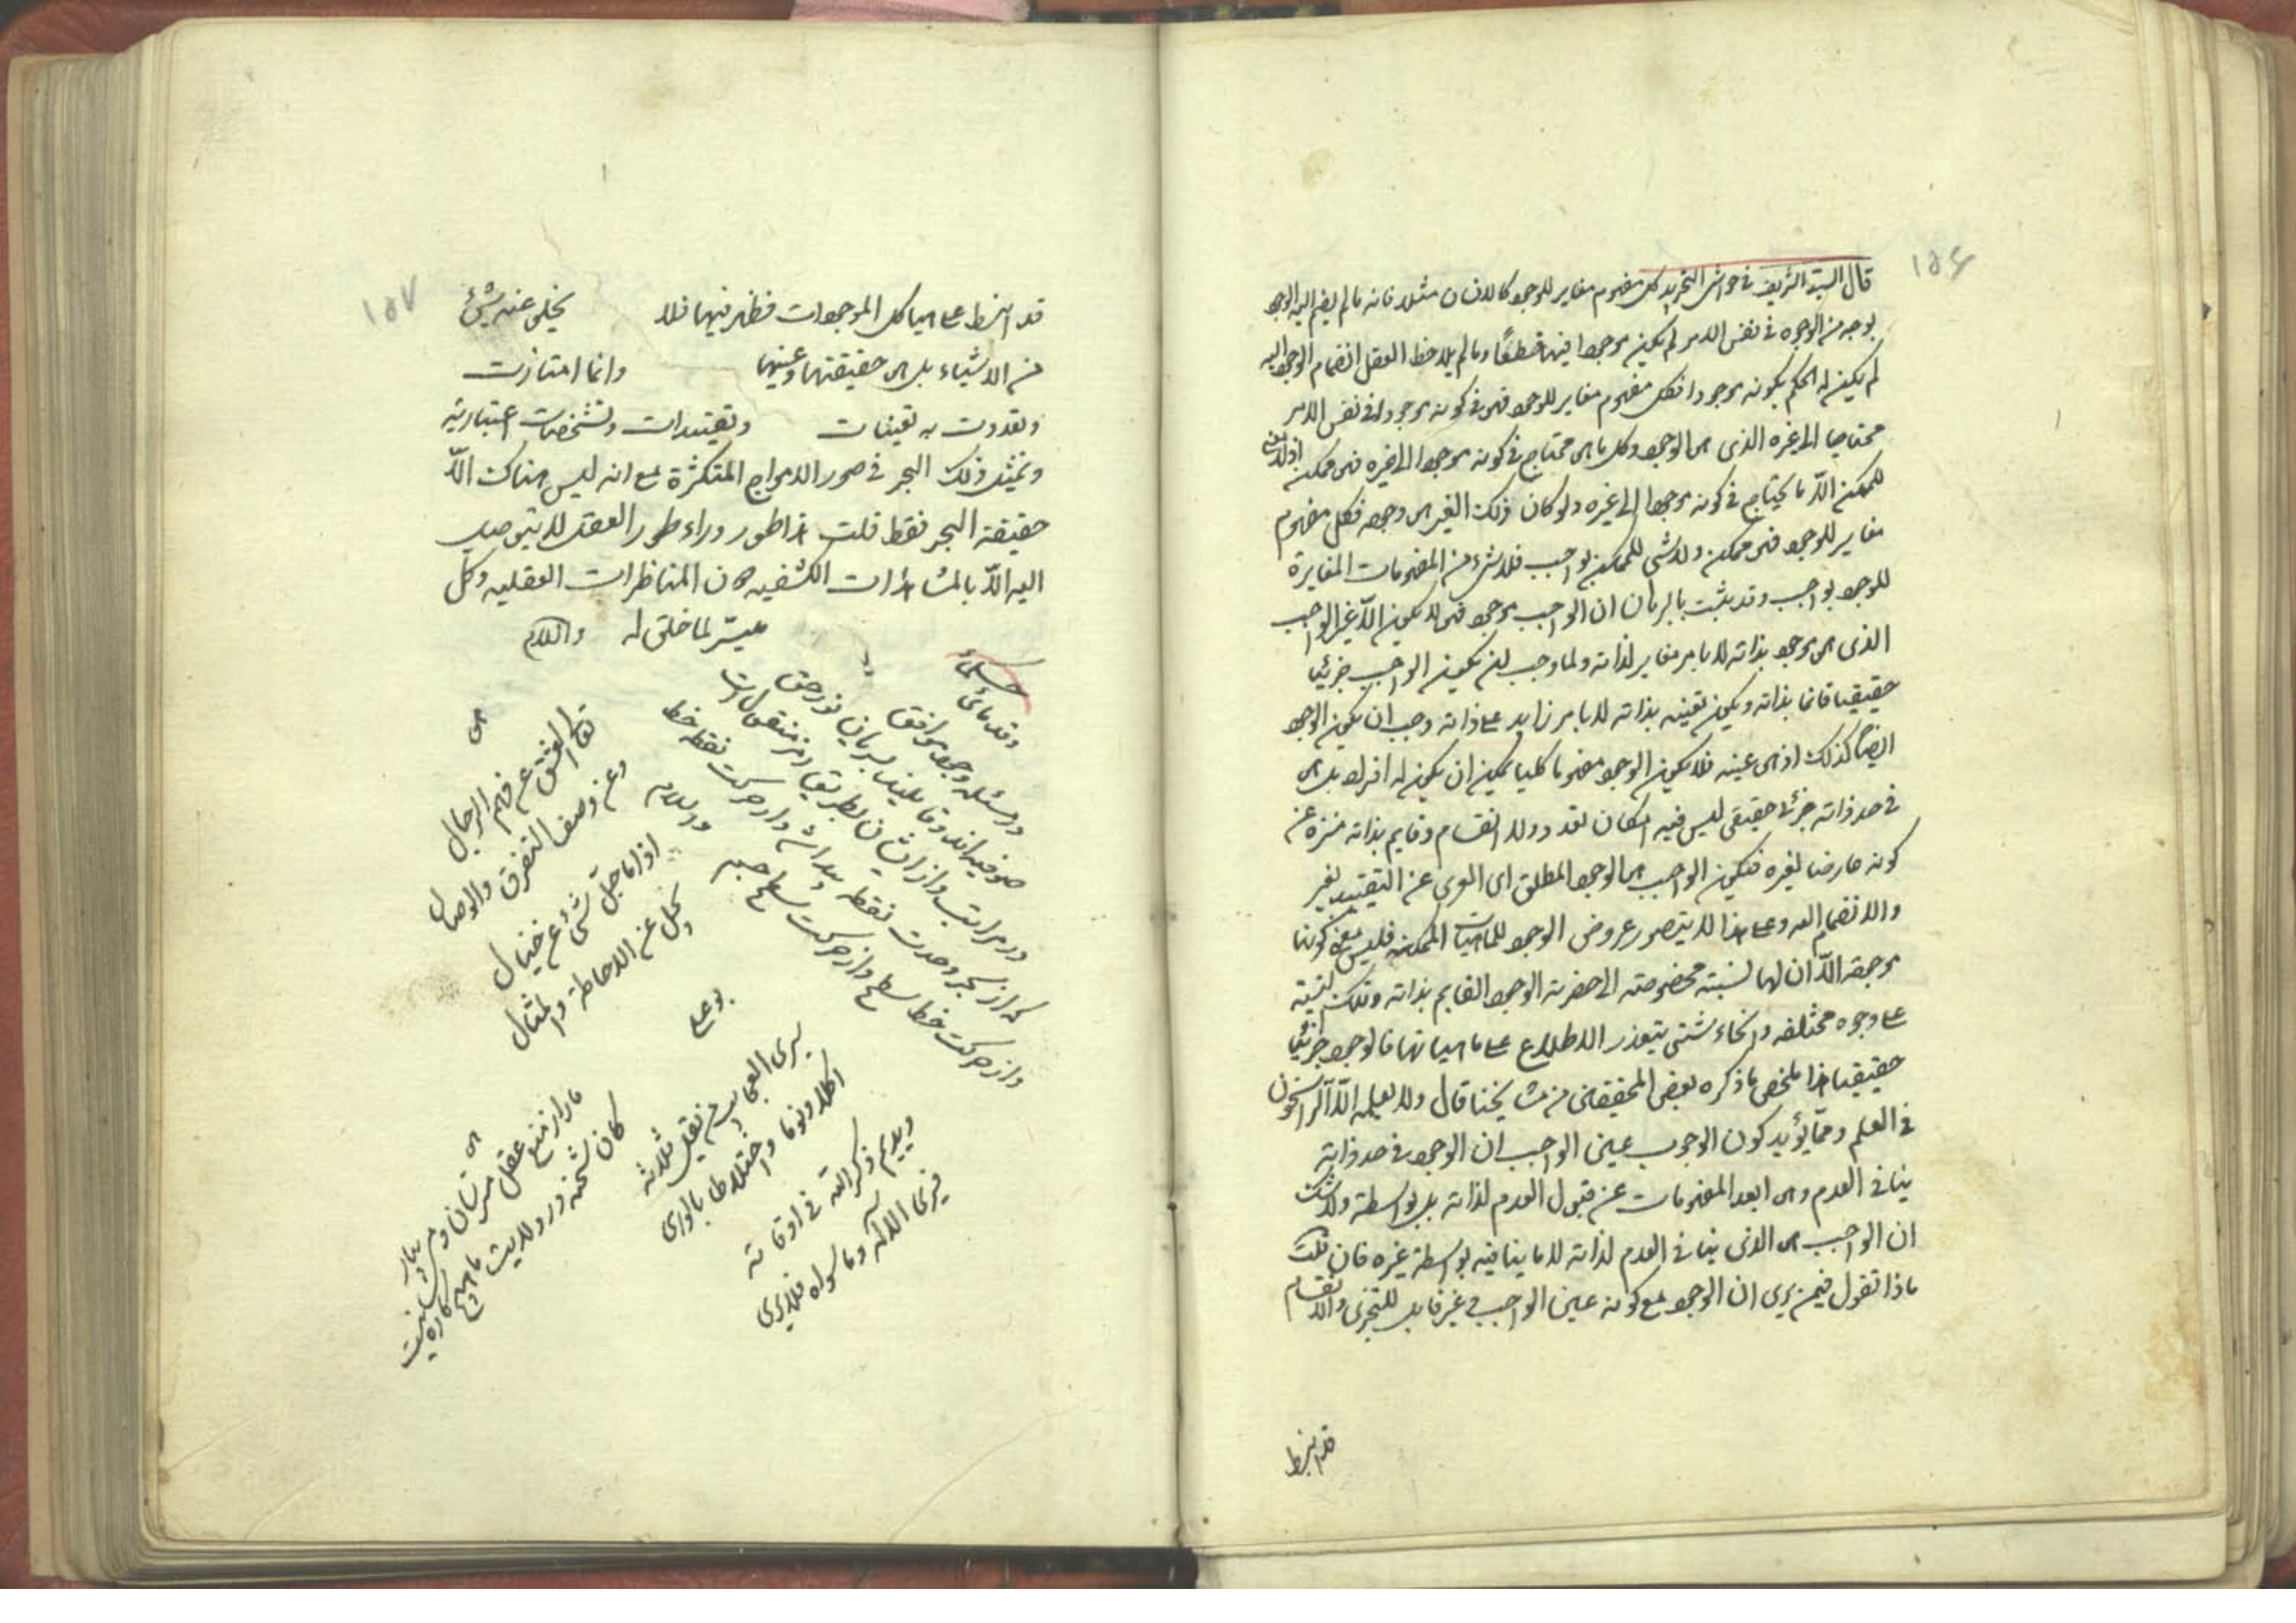 ١٥٦
قال السيد الشريف في حواشي التجريد كل مفهوم مغاير للوجود كالانسان مثلا فانه ما لم ينضم اليه الوجود
بوجه من الوجوه في نفس الامر لم يكن موجودا فيها قطعًا وما لم يلاحظ العقل انضمام الوجود اليه
لم يكن له الحكم بكونه موجودا فكل مفهوم مغاير للوجود فهو في كونه موجودا في نفس الامر
محتاجا الى غيره الذى هو الوجود وكل ما هو محتاج في كونه موجودا الى غيره فهو ممكن اذ لا معنى
للممكن الّا ما يحتاج في كونه موجودا الى غيره ولو كان ذلك الغير هو وجوده فكل مفهوم
مغاير للوجود فهو ممكن ولا شى للممكن بواجب فلا شئ من المفهومات المغايرة
للوجود بواجب وقد يثبت بالبرهان ان الواجب موجود فهو لا يكون الّا عين الواجب
الذى هو موجود بذاته لا بامر مغاير لذاته ولما وجب ان يكون الواجب جزئيا
حقيقيا قائما بذاته ويكون تعينه بذاته لا بامر زايد على ذاته وجب ان يكون الوجود
ايضًا كذلك اذ هو عينه فلا يكون الوجود مفهوما كليا يمكن ان يكون له افراد بل هو
في حد ذاته جزئى حقيقى ليس فيه امكان تعدد ولا انقسام وقايم بذاته منزه عن
كونه عارضا لغيره فيكون الواجب هو الوجود المطلق اى المعرى عن التقييد بغير
والانضمام اليه وعلى هذا لا يتصور عروض الوجود للماهيات الممكنه فليس معنى كونها
موجوده الّا ان لها نسبة مخصوصته الى حضرة الوجود القايم بذاته وتلك النسبة
على وجوه مختلفه وانحاء شتى يتعذر الاطلاع على ماهياتها فالوجود جزئيا
حقيقيا هذا ملخص ما ذكره بعض المحققين من مشايخنا قال ولا يعلمه الّا الراسخون
في العلم وممّا يؤيد كون الوجوب عين الواجب ان الوجود في حد ذاته
ينافى العدم وهو ابعد المفهومات عن قبول العدم لذاته بل بواسطة ولا شك
ان الواجب هو الذى ينافى العدم لذاته لا ما ينافيه بواسطة غيره فان قلت
ماذا تقول فيمن يرى ان الوجود مع كونه عين الواجب وغير قابل للتجزى والانقسام
قد انبسط
١٥٧
قد انبسط على هياكل الموجودات فظهر فيها فلا يخلى عنه شئ
من الاشياء بل هو حقيقتها وعينها وانما امتازت
وتعددت به تعينات وتقيدات وتشخصات اعتبارية
وتمثل ذلك البحر في صور الامواج المتكثرة مع انه ليس هناك الّا
حقيقة البحر فقط قلت هذا طور وراء طور العقل لا يتوصل
اليه الّا بالمشاهدات الكشفيه دون المناظرات العقليه وكل
ميسّر لما خلق له والسلام
حكماء
وقدمائ
در مسئله وجود موافق
صوفيه اند وقايلند بسريان نور حق
در مراتب واز ايشان بطريق رمز منقول است
كه از بحر وحدت نقطه پيدا شد واز حركت نقطه خط
واز حركت خط سطح واز حركت سطح جسم
تعالى العشق عن فهم الرجال
وعن وصف التفرق والوصال
اذا ما جلّ شئ عن خيال
يجل عن الاحاطة والمثال
بو على
يرى العجايب من تقلل ثلاثه
اكلا ونوما واختلاطا بالورى
ويديم ذكر الله في اوقاته
فيرى الاله وما سواه فلا يرى
ما را ز منع عقل مترسان ومى بيار
كان شحنه در ولايت ما هيچ كاره نيست